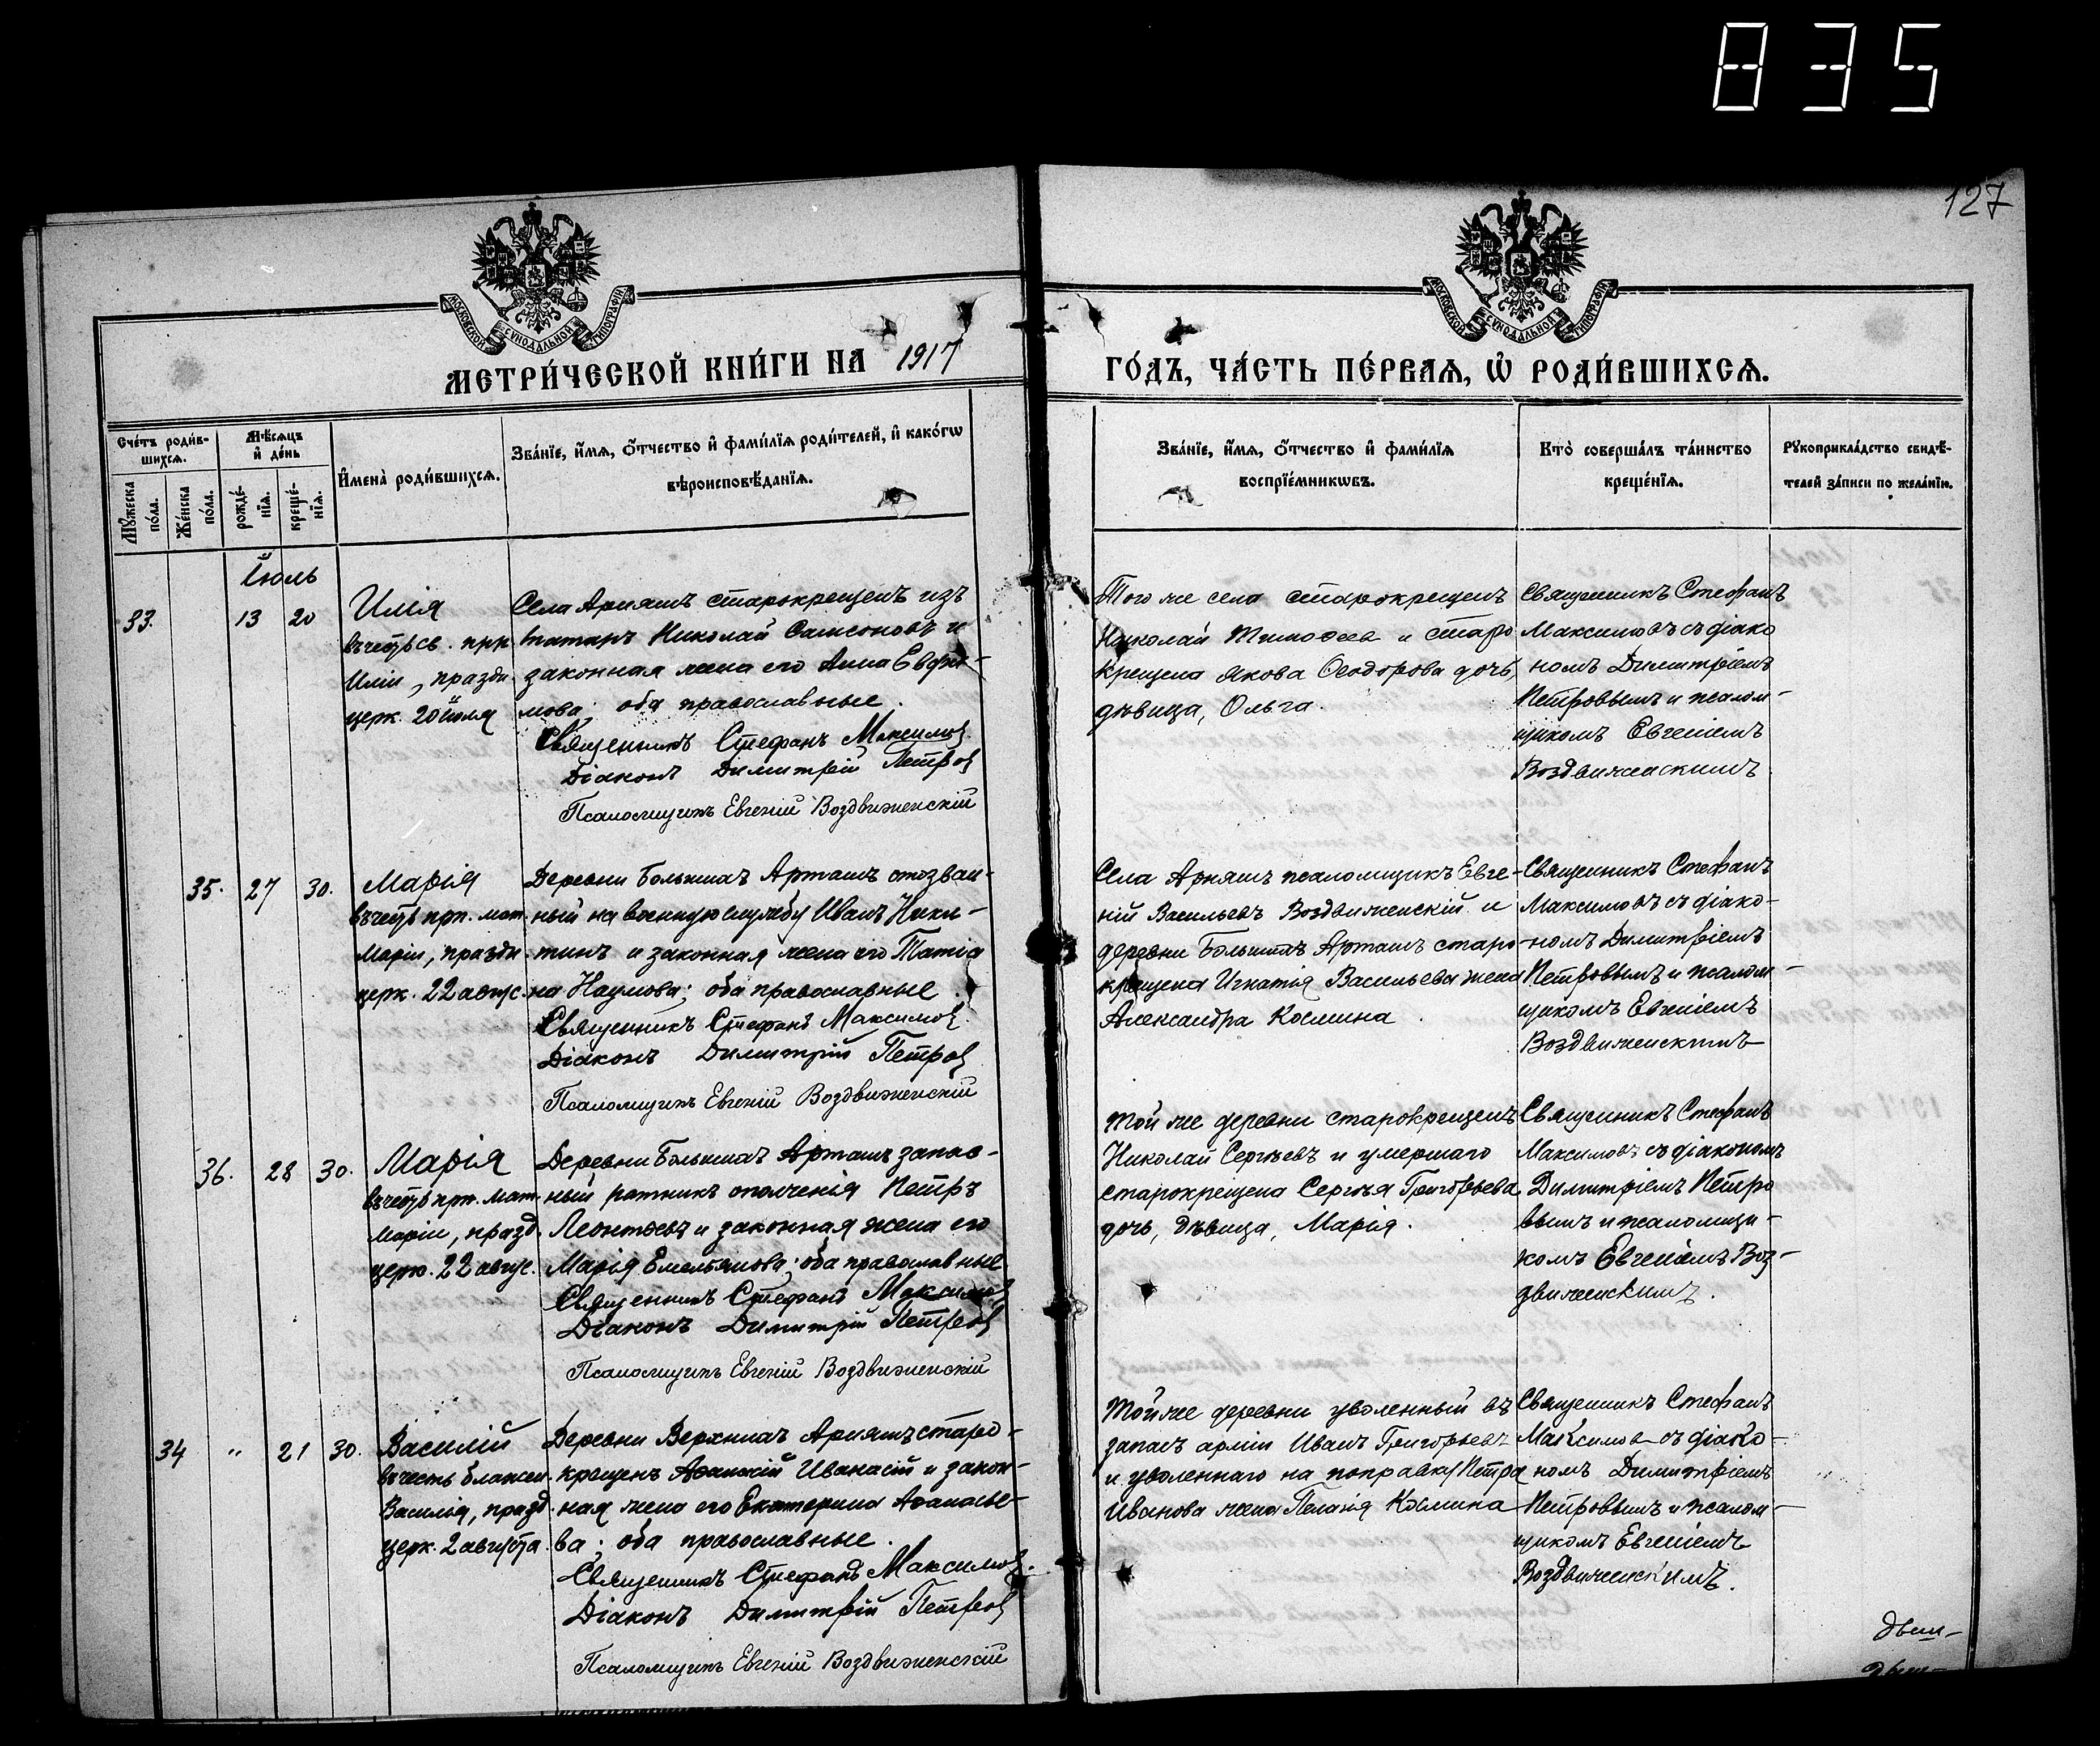 835
127
МОСКОВСКОЙ СѴНОДАЛЬНОЙ ТИПОГРАФІИ
МОСКОВСКОЙ СѴНОДАЛЬНОЙ ТИПОГРАФІИ
МЕТРИ́ЧЕСКОЙ КНИ́ГИ НА 1917
ГО́ДЪ, ЧА́СТЬ ПЕ́РВАѦ, Ѡ РОДИ́ВШИХСѦ.
Сче́тъ роди́в-
шихсѧ.
Мꙋ́жеска
по́ла.
Же́нска
по́ла.
Мѣ́сѧцъ
и де́нь
рожде́-
нїѧ.
креще́-
нїѧ.
Имена̀ роди́вшихсѧ.
Зва́нїе, и́мѧ, ѻ́тчество и фами́лїѧ роди́телей, и како́гѡ
вѣроисповѣ́данїѧ.
Зва́нїе, и́мѧ, ѻ́тчество и фами́лїѧ
воспрїе́мникѡвъ.
Кто̀ соверша́лъ та́инство
креще́нїѧ.
Рꙋкоприкла́дство свидѣ́-
телей за́писи по жела́нїю.
Іюль
33.
13
20
Илія
въ честь св. прр.
Иліи, праздн.
церк. 20 іюля
Села Аряшъ старокрещенъ изъ
татаръ Николай Самсоновъ и
законная жена его Анна Евфи-
мова; оба православные.
Священникъ Стефанъ Максимов
Діаконъ Димитрій Петров
Псаломщикъ Евгеній Воздвиженскій
Того же села старокрещенъ
Николай Тимофеев и старо
крещена Якова Ѳеодорова дочь,
дѣвица, Ольга.
Священникъ Стефанъ
Максимовъ съ діако
номъ Димитріемъ
Петровымъ и псалом-
щикомъ Евгеніемъ
Воздвиженскимъ.
35.
27
30.
Марія
въ честь прп. мат.
Маріи, праздн.
церк. 22 авгус.
Деревни Большихъ Арташъ отозван-
ный на военную службу Иванъ Ники-
тинъ и законная жена его Татіа
на Наумова; оба православные.
Священникъ Стефанъ Максимов
Діаконъ Димитрій Петров
Псаломщикъ Евгеній Воздвиженскій
Села Аряшъ псаломщикъ Евге-
ній Васильевъ Воздвиженскій и
деревни Большихъ Арташъ старо-
крещена Игнатія Васильева жена
Александра Космина.
Священникъ Стефанъ
Максимовъ съ діако-
номъ Димитріемъ
Петровымъ и псалом-
щикомъ Евгеніемъ
Воздвиженскимъ
36.
28
30.
Марія
въ честь прп. мат.
Маріи, празд.
церк. 22 авгус.
Деревни Большихъ Арташъ запас-
ный ратникъ ополченія Петръ
Леонтьевъ и законная жена его
Марія Емельянова; оба православные.
Священникъ Стефанъ Максимов
Діаконъ Димитрій Петров
Псаломщикъ Евгеній Воздвиженскій
Той же деревни старокрещенъ
Николай Сергѣевъ и умершаго
старокрещена Сергѣя Григорьева
дочь, дѣвица, Марія.
Священникъ Стефанъ
Максимовъ съ діакономъ
Димитріемъ Петро
вымъ и псаломщи-
комъ Евгеніемъ Воз-
движенскимъ.
34
"
21
30.
Василій
въ честь блажен.
Василія, празд.
церк. 2 августа.
Деревни Верхнихъ Аряшъ старо-
крещенъ и закон-
ная жена его Екатерина Аѳанасье-
ва; оба православные.
Священникъ Стефанъ Максимов.
Діаконъ Димитрій Петров
Псаломщикъ Евгеній Воздвиженскій
Той же деревни уволенный въ
запасъ арміи Иванъ Григорьевъ
и уволеннаго на поправку Петра
Иванова жена Пелагія Космина
Священникъ Стефанъ
Максимов съ діако-
номъ Димитріемъ
Петровымъ и псалом-
щикомъ Евгеніемъ
Воздвиженскимъ.